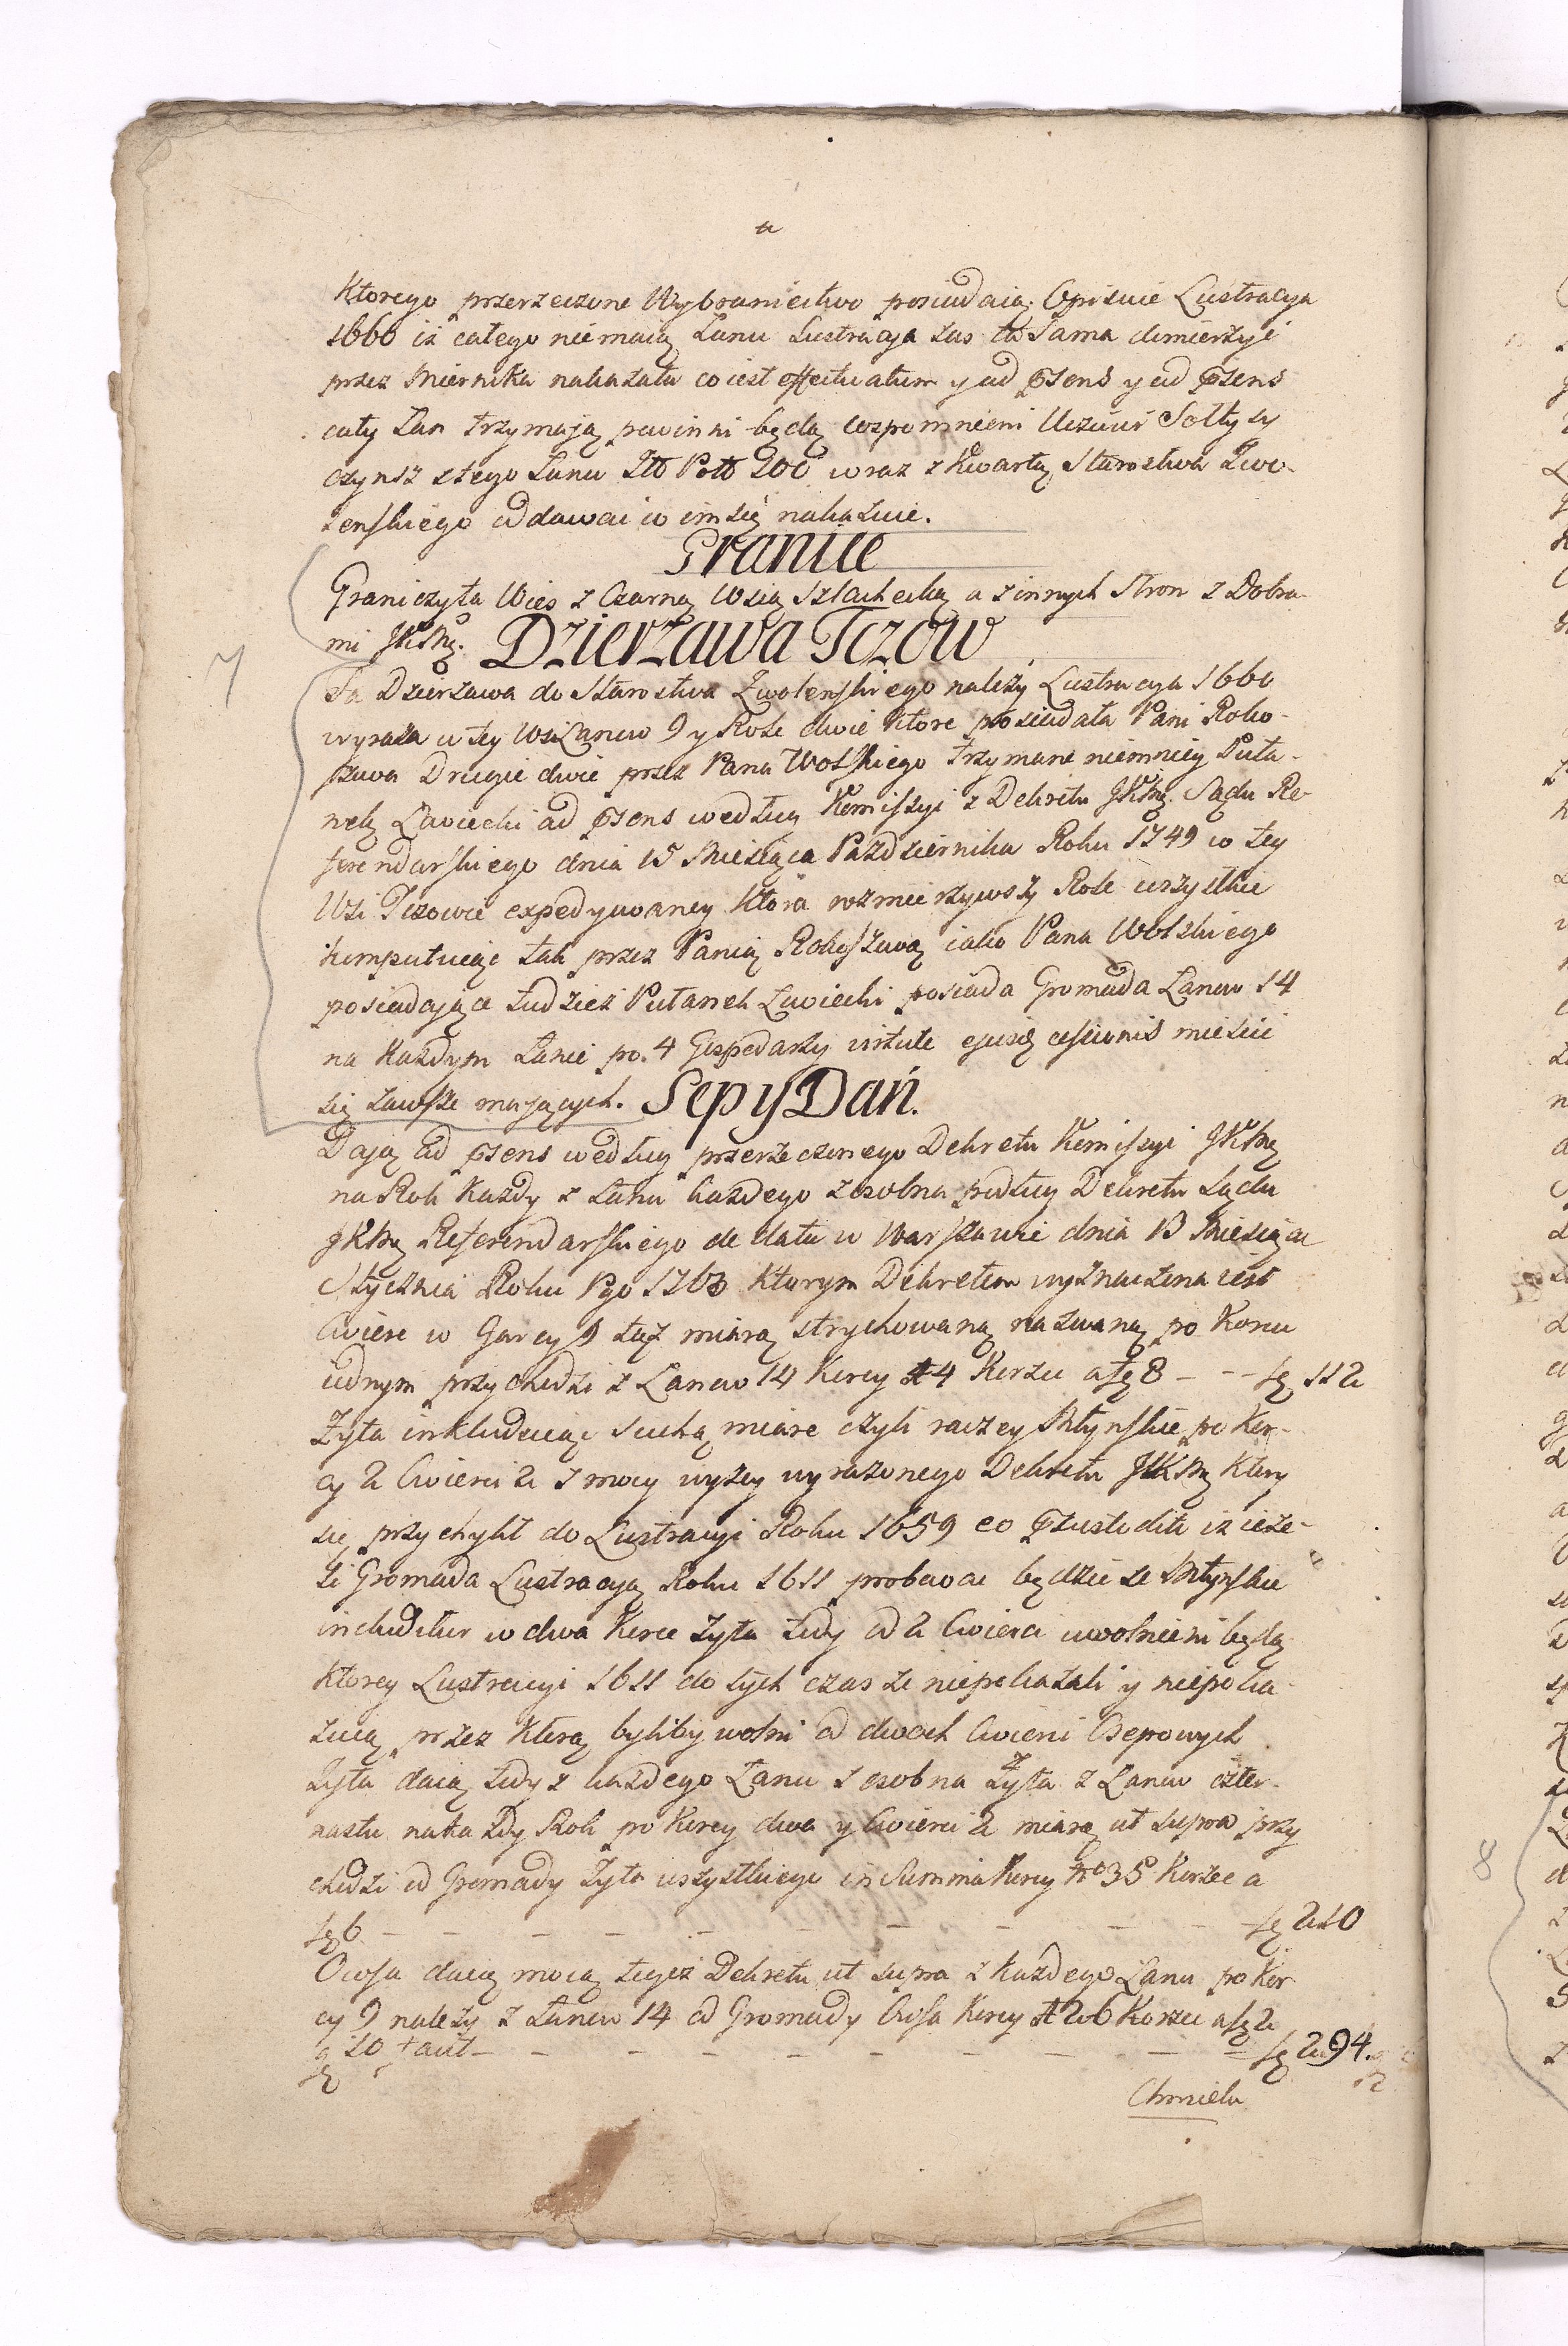 Ktorego przerzeczone Wybraniectwo posiadaią. Opisuie Lustracya
1660 iż całego nie maią Łanu Lustracya zas ta sama dimierżyć
przez Miernika nakazała co iest effectuatum y ad psens y ad psens
cały Łan trzymają powinni będą wspomnieni Uczciwi Sołtysy
czynsz ztego Łanu Złł Poll 200 wraz z Kwartą Starostwa Zwo-
lenskiego oddawać co im się nakazuie.
Granice
Graniczyła Wies z Czarną Wsią Szlachecką a z innych Stron z Dobra-
mi JKMę. Dzierżawa Tczow
7
Ta Dzierżawa do Starostwa Zwolenskiego należy Lustracya 1660
wyraża w tey Wsi Łanow 9 y Role dwie ktore posiadała Pani Roko-
szowa Drugie dwie przez Pana Wolskiego trzymane niemniey Puła-
nek Ławiecki ad psens według Komissyi z Dekretu JKMę. Sądu Re-
ferendarskiego dnia 15 Miesiąca Pazdziernika Roku 1749 w tey
Wsi Tczowie expedyiowaney ktora rozmierzywszy Role wszystkie
komputuiąc tak przez Panią Rokoszową iako Pana Wolskiego
posiadające tudzież Pułanek Ławiecki posiada Gromada Łanow 14
na każdym Łanie po. 4 Gospodarzy virtute ejusdę cessionis miescić
się zawsze mających. Sepy Dań.
Dają ad psens według przerzeczonego Dekretu Komissyi JKMę
na Rok każdy z Łanu każdego zosobna podług Dekretu Sądu
JKMę Referendarskiego de data w Warszawie dnia 13 Miesiąca
Stycznia Roku Pgo 1763 ktorym Dekretem wyznaczona iest
Cwierc w Garcy 9 tąż miarą strychowaną nazwaną po Korcu
iednym przychodzi z Łanow 14 Korcy 14 Korzec a fę 8 - - - fę 112
Żyta inkluduiąc suchą miarę czyli raczey Młynskie po Kor-
cy 2 Cwierci 2 z mocy wyżey wyrażonego Dekretu JKMę ktory
się przychylił do Lustracyi Roku 1659 eo custodita iż ieże-
li Gromada Lustracyą Roku 1611 probować będzie że Młynskie
includitur w dwa Korce Żyta tedy od 2 Cwierci uwolnieni będą
ktorey Lustracyi 1611 do tych czas że niepokazali y niepoka-
zuią przez ktorą byliby wolni od dwoch Cwierci Osepowych
Żyta daią tedy z każdego Łanu z osobna Żyta z Łanow czter-
nastu na każdy Rok po Korcy dwa y Cwierci 2 miarą ut supra przy
chodzi od Gromady Żyta wszystkiego in Summa Korcy No 35 Korzec a
fę 6 - - - - - - - - - fę 210
Owsa daią mocą tegoż Dekretu ut supra z każdego Łanu po Kor
cy 9 należy z Łanow 14 od Gromady Owsa Korcy 126 Korzec a fę 2
g 10 facit - - - - - - - - fę 294.
Chmielu